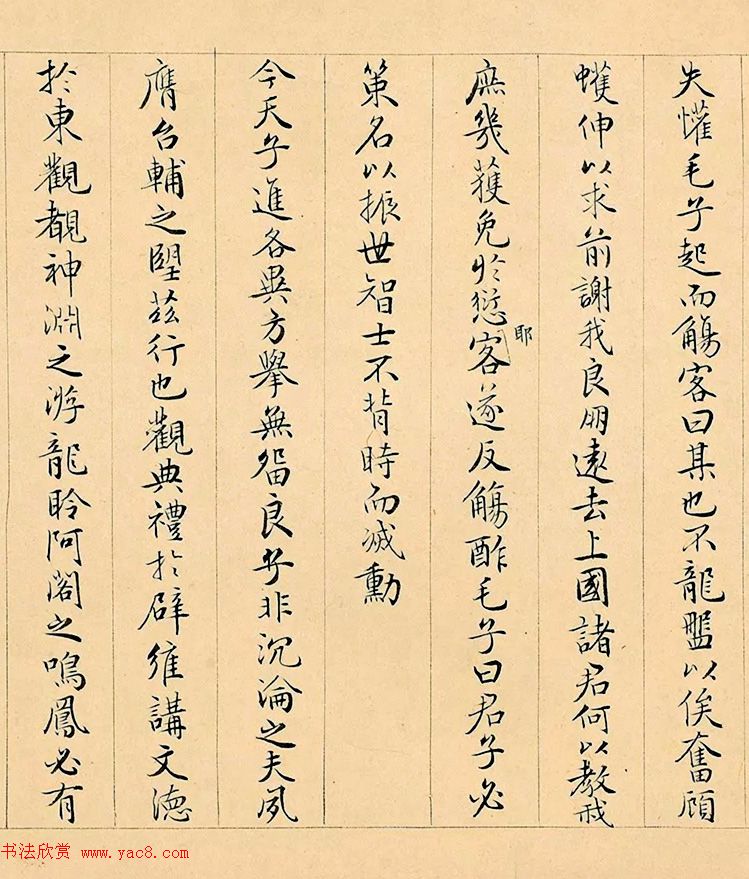 失懽毛子起而觴客曰某也不龍盤以俟奮顧
蠖伸以求前謝我良朋遠去上國諸君何以教我
庶幾獲免於愆客遂反觴酢毛子曰君子必
耶
策名以振世智士不背時而滅勳
今天子進各異方舉無留良子非沉淪之夫夙
膺台輔之望茲行也觀典禮於辟雍講文德
於東觀覩神淵之游龍聆阿閣之鳴鳳必有
书法欣赏 www.yac8.com